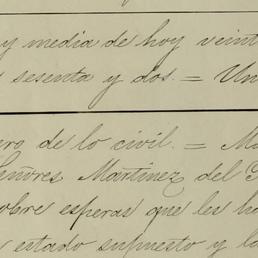 y media de hoy veint
sesenta y dos. = Un
ro de lo civil. = Ma
Señores Martinez del
obre esperas que les ha
estado supuesto y la